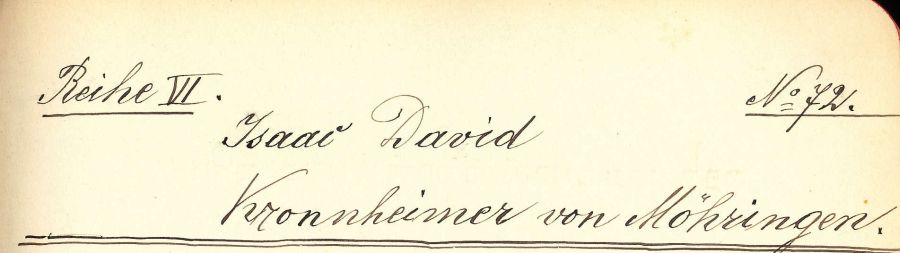 Reihe VI.
No 72.
Isaac David
Kronnheimer von Möhringen.